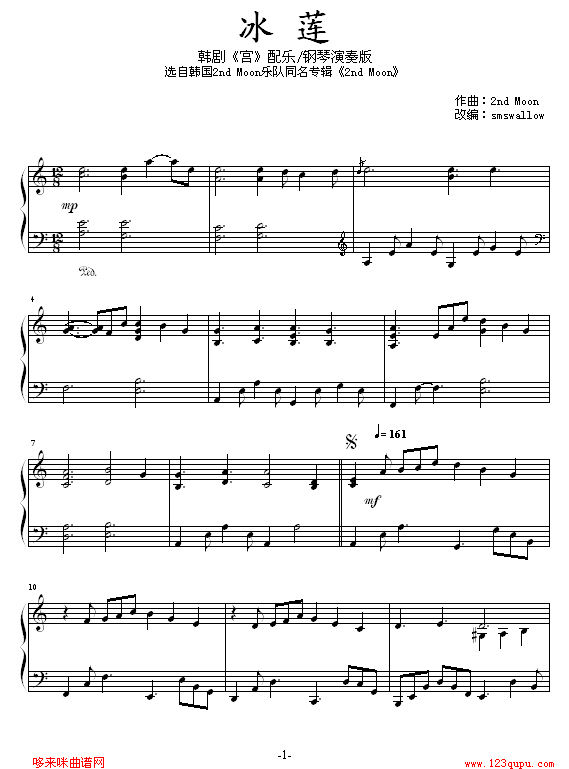 冰 莲
韩剧《宫》配乐/钢琴演奏版
选自韩国2nd Moon乐队同名专辑《2nd Moon》
作曲：2nd Moon
改编：smswallow
12 8
mp
12 8
Ped.
4
7
= 161
mf
10
-1-
哆来咪曲谱网
www.123qupu.com